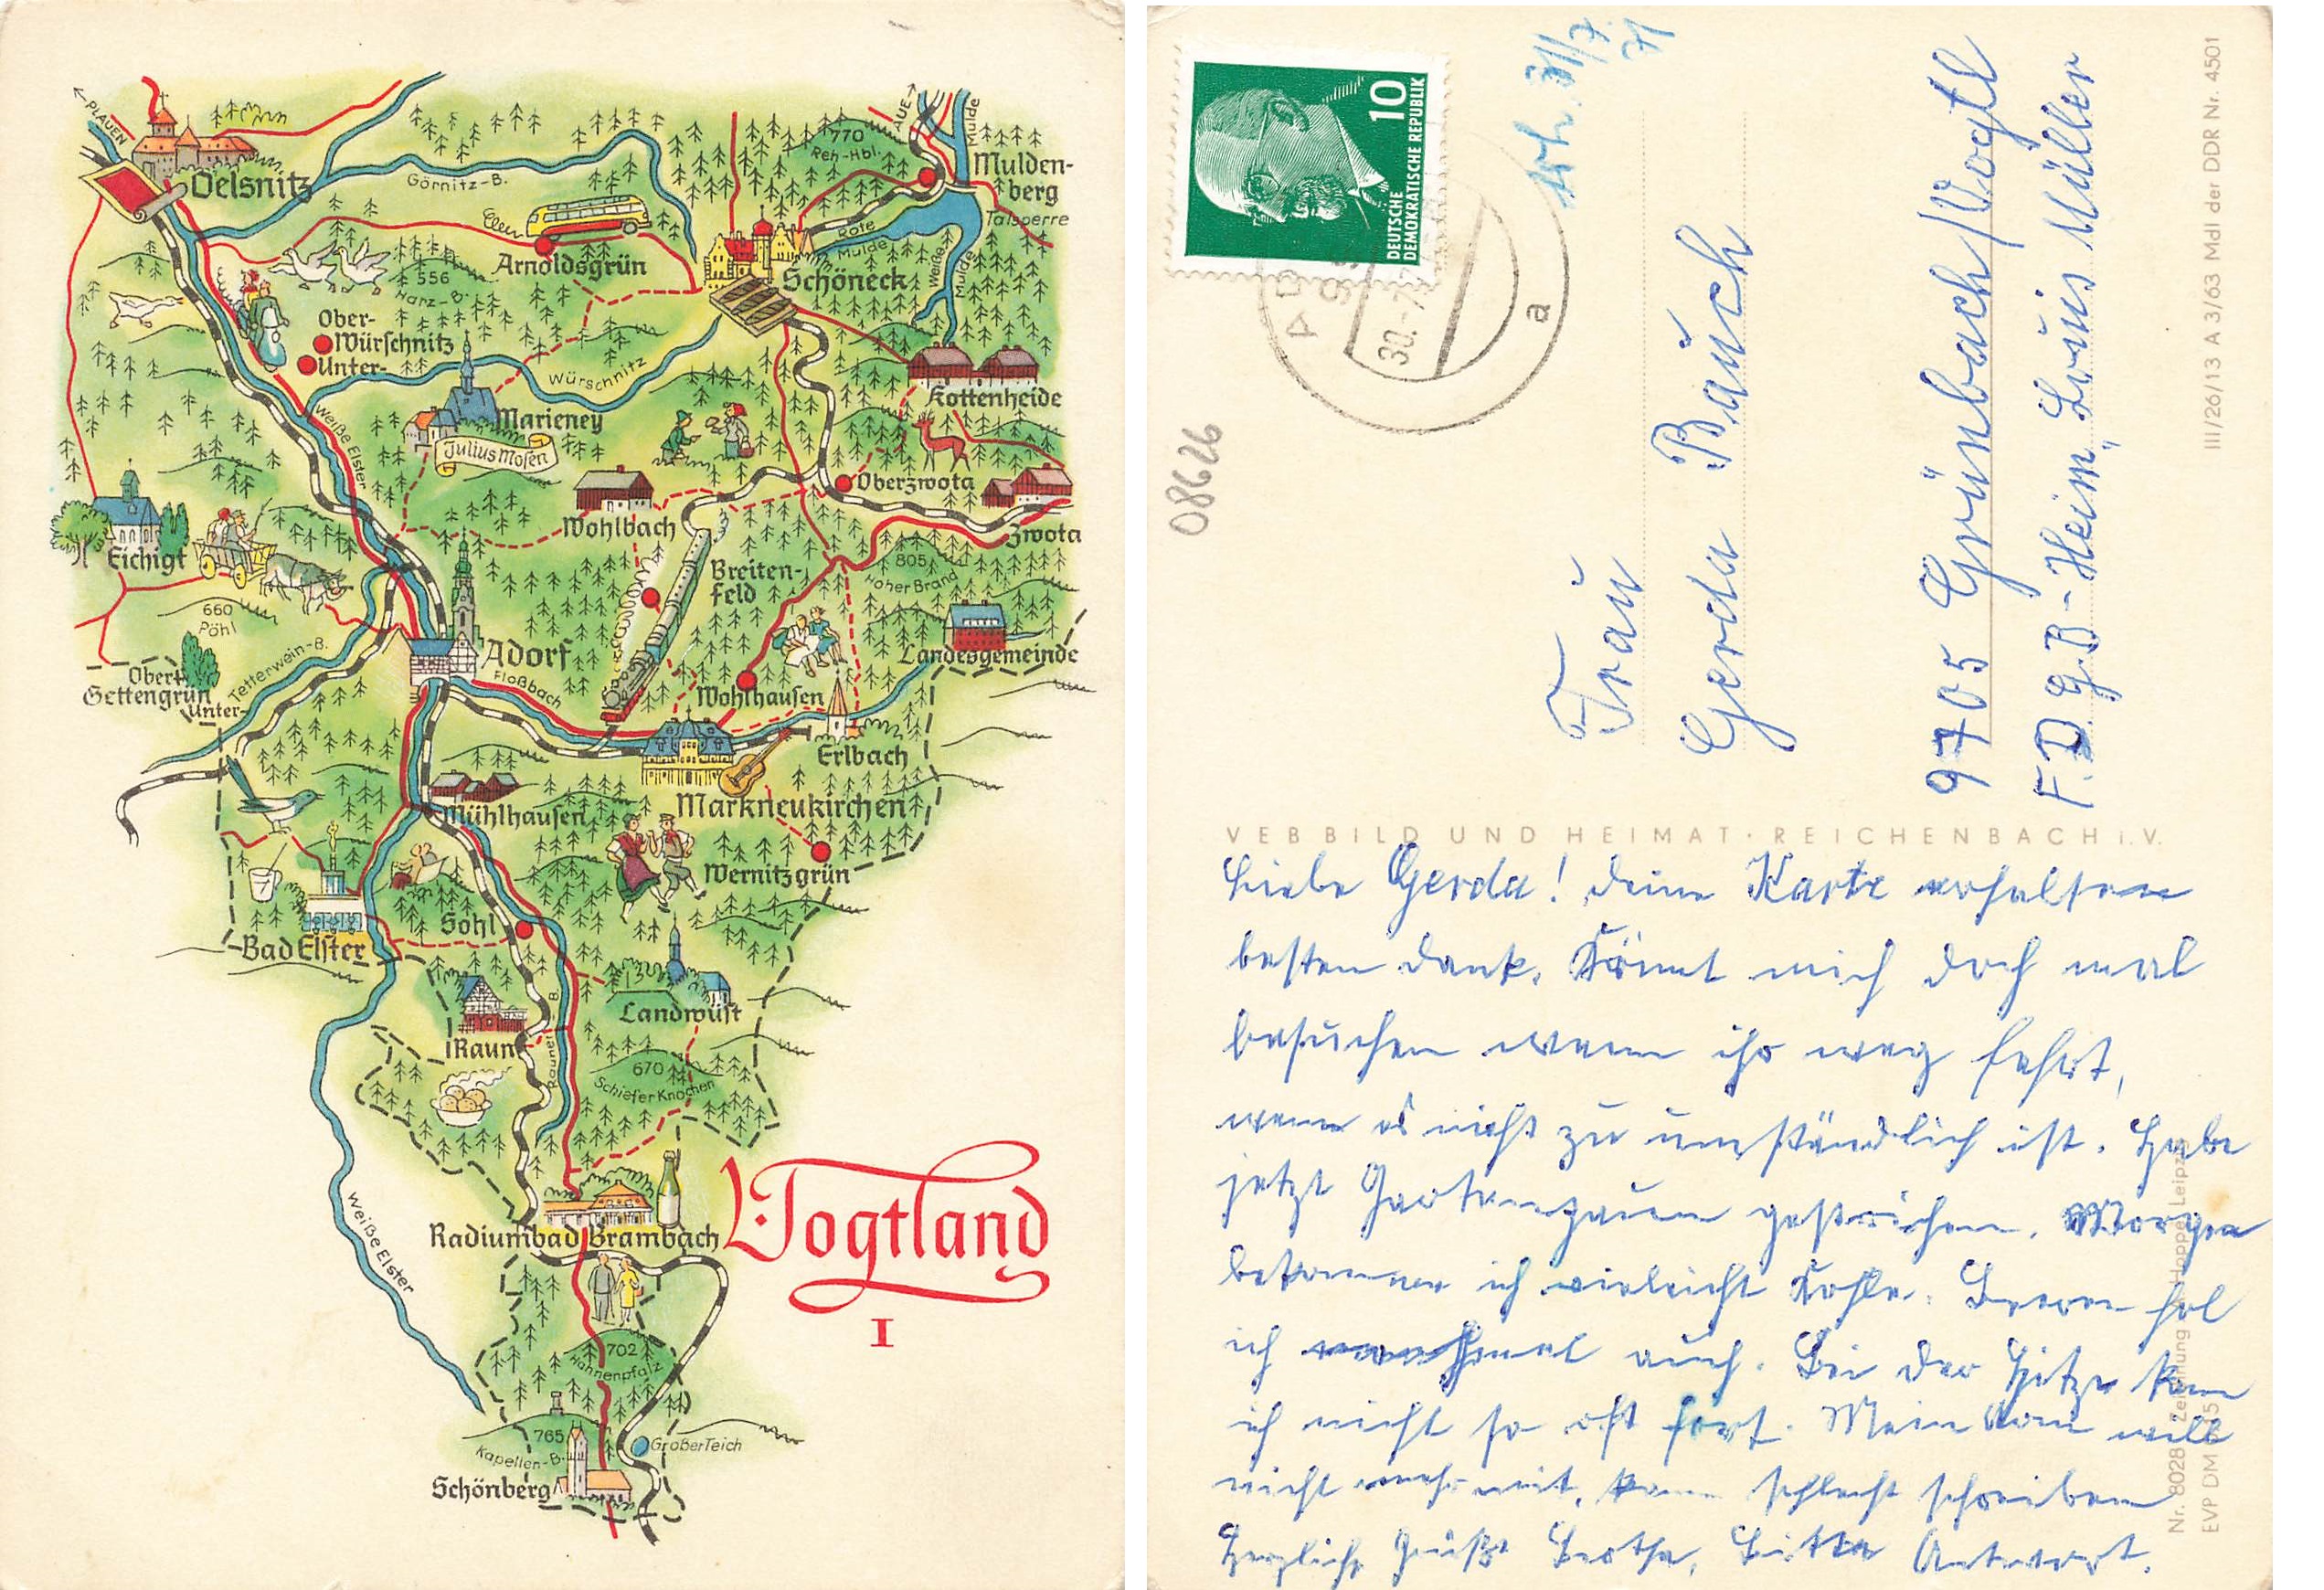 PLAUEN
Oelsnitz
Görnitz-B.
770
Reh-Hbl.
AUE
Mulde
Mulden-
berg
Talsperre
Rote
Mulde
Weiße
Mulde
Arnoldsgrün
Schöneck
556
Harz-B.
Ober-
Würschnitz
Unter-
Würschnitz
Weiße Elster
Marieney
Julius Mosen
Kottenheide
Oberzwota
Zwota
Wohlbach
Eichigt
660
Pöhl
Breiten-
feld
805
Hoher Brand
Landesgemeinde
Ober-
Gettengrün
Unter-
Tetterwein-B.
Adorf
Floßbach
Wohlhausen
Erlbach
Markneukirchen
Mühlhausen
Wernitzgrün
Bad Elster
Sohl
Landwüst
Raun
Rauner B.
670
Schiefer Knochen
Weiße Elster
Radiumbad Brambach
Vogtland
I
702
Hahnenpfalz
765
Kapellen-B.
Großer Teich
Schönberg
DEUTSCHE
DEMOKRATISCHE REPUBLIK
10
30.-7.
a
erh. 31/7.
71
08626
Frau
Gerda Bauch
9705 Grünbach/Vogtl
F.D.G.B-Heim „Louis Müller
III/26/13 A 3/63 MdI der DDR Nr. 4501
VEB BILD UND HEIMAT · REICHENBACH i. V.
Liebe Gerda! deine Karte erhalten
besten dank. Könnt mich doch mal
besuchen wenn ihr weg fahrt,
wenn es nicht zu umständlich ist. Habe
jetzt Gartenzaun gestrichen. Morgen
bekomme ich vieleicht Kohle. Beeren hol
ich manchmal auch. Bei der Hitze kan
ich nicht so oft fort. Mein Arm will
nicht mehr mit, kann schlecht schreiben
Herzlich Grüßt Bertha, Bitte Antwort.
Nr. 8028 Zeichnung Hoppe, Leipzig
EVP DM